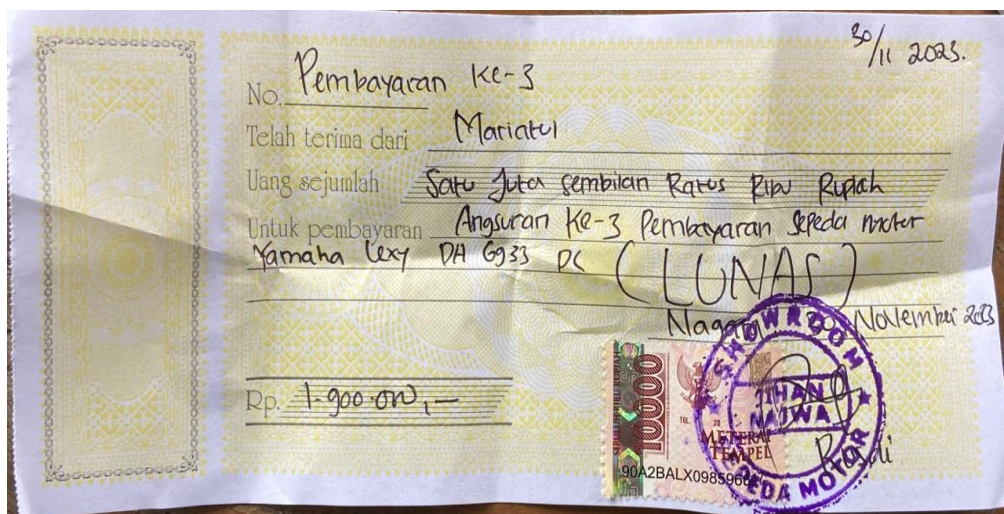 30/11 2023.
No. Pembayaran Ke-3
Telah terima dari Mariatul
Uang sejumlah Satu Juta Sembilan Ratus Ribu Rupiah
Untuk pembayaran Angsuran Ke-3 Pembayaran Sepeda motor
Yamaha Lexy DA 6933 PC (LUNAS)
Nagara 30 November 2023
Rp. 1.900.000,-
10000
TGL. 20
METERAI
TEMPEL
90A2BALX098596
SHOWROOM
JIHAN
NAJWA
SEPEDA MOTOR